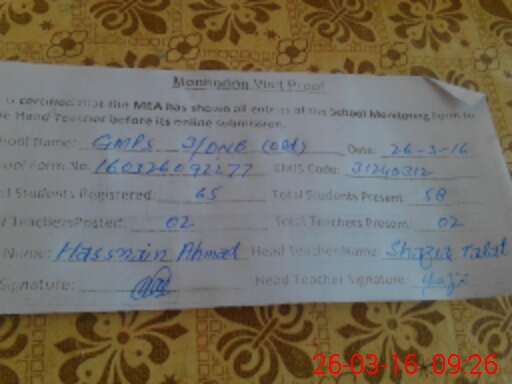 Monitoring Visit Proof
is certified that the MEA has shown all entries of the School Monitoring form to
he Head Teacher before its online submission.
hool Name: GMPS 3/DNB (old) Date: 26-3-16
ool Form No. 160326092277 EMIS Code: 31240312
l Students Registered: 65 Total Students Present: 58
Teachers Posted: 02 Total Teachers Present: 02
Name: Hassnain Ahmad Head Teacher Name: Shazia
Signature: Head Teacher Signature:
26-03-16 09:26